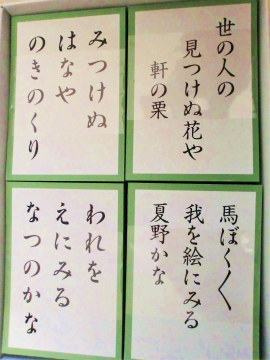 世の人の
見つけぬ花や
軒の栗
みつけぬ
はなや
のきのくり
馬ぼく／＼
我を絵にみる
夏野かな
われを
えにみる
なつのかな